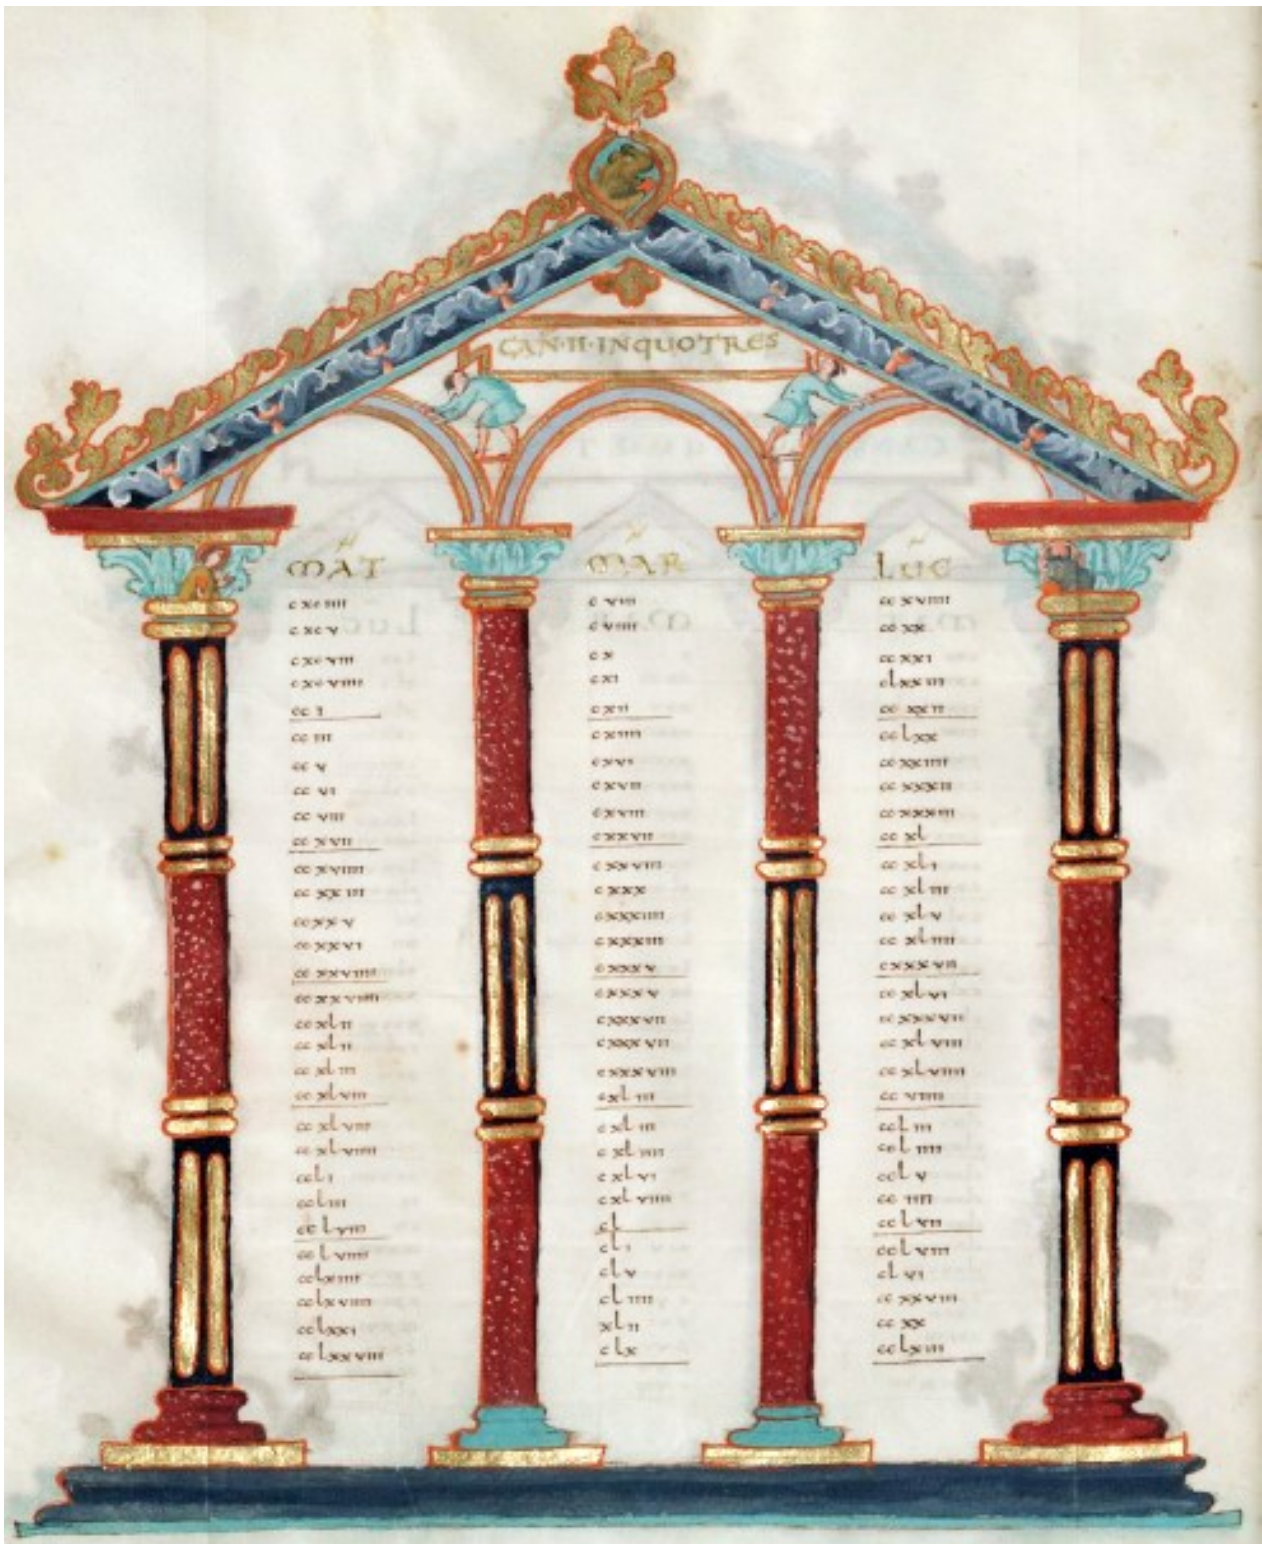 CAN·II·IN QUO TRES
MAT MAR LUC
cxciiii cviii ccxviiii
cxcv cviiii ccxx
cxcviii cx ccxxi
cxcviiii cxi clxxiii
cci cxii ccxxii
cciii cxiiii cclxx
ccv cxvi ccxxiiii
ccvi cxvii ccxxxii
ccviii cxviii ccxxxiii
ccxvii cxxvii ccxl
ccxviiii cxxviii ccxli
ccxxiii cxxx ccxliii
ccxxv cxxxiiii ccxlv
ccxxvi cxxxiii ccxliiii
ccxxviiii cxxxv cxxxvii
ccxxviiii cxxxv ccxlvi
ccxlii cxxxvii ccxxxvii
ccxlii cxxxvii ccxlviii
ccxliii cxxxviii ccxlviiii
ccxlviii cxliii ccviiii
ccxlviii cxliii ccliii
ccxlviiii cxliiii ccliiii
ccli cxlvi cclv
ccliii cxlviiii cciiii
cclviii cl cclxii
cclviiii cli cclviii
cclxiiii clv clvi
cclxviiii cliiii ccxxviii
cclxxi xlii ccxx
cclxxviii clx cclxiii